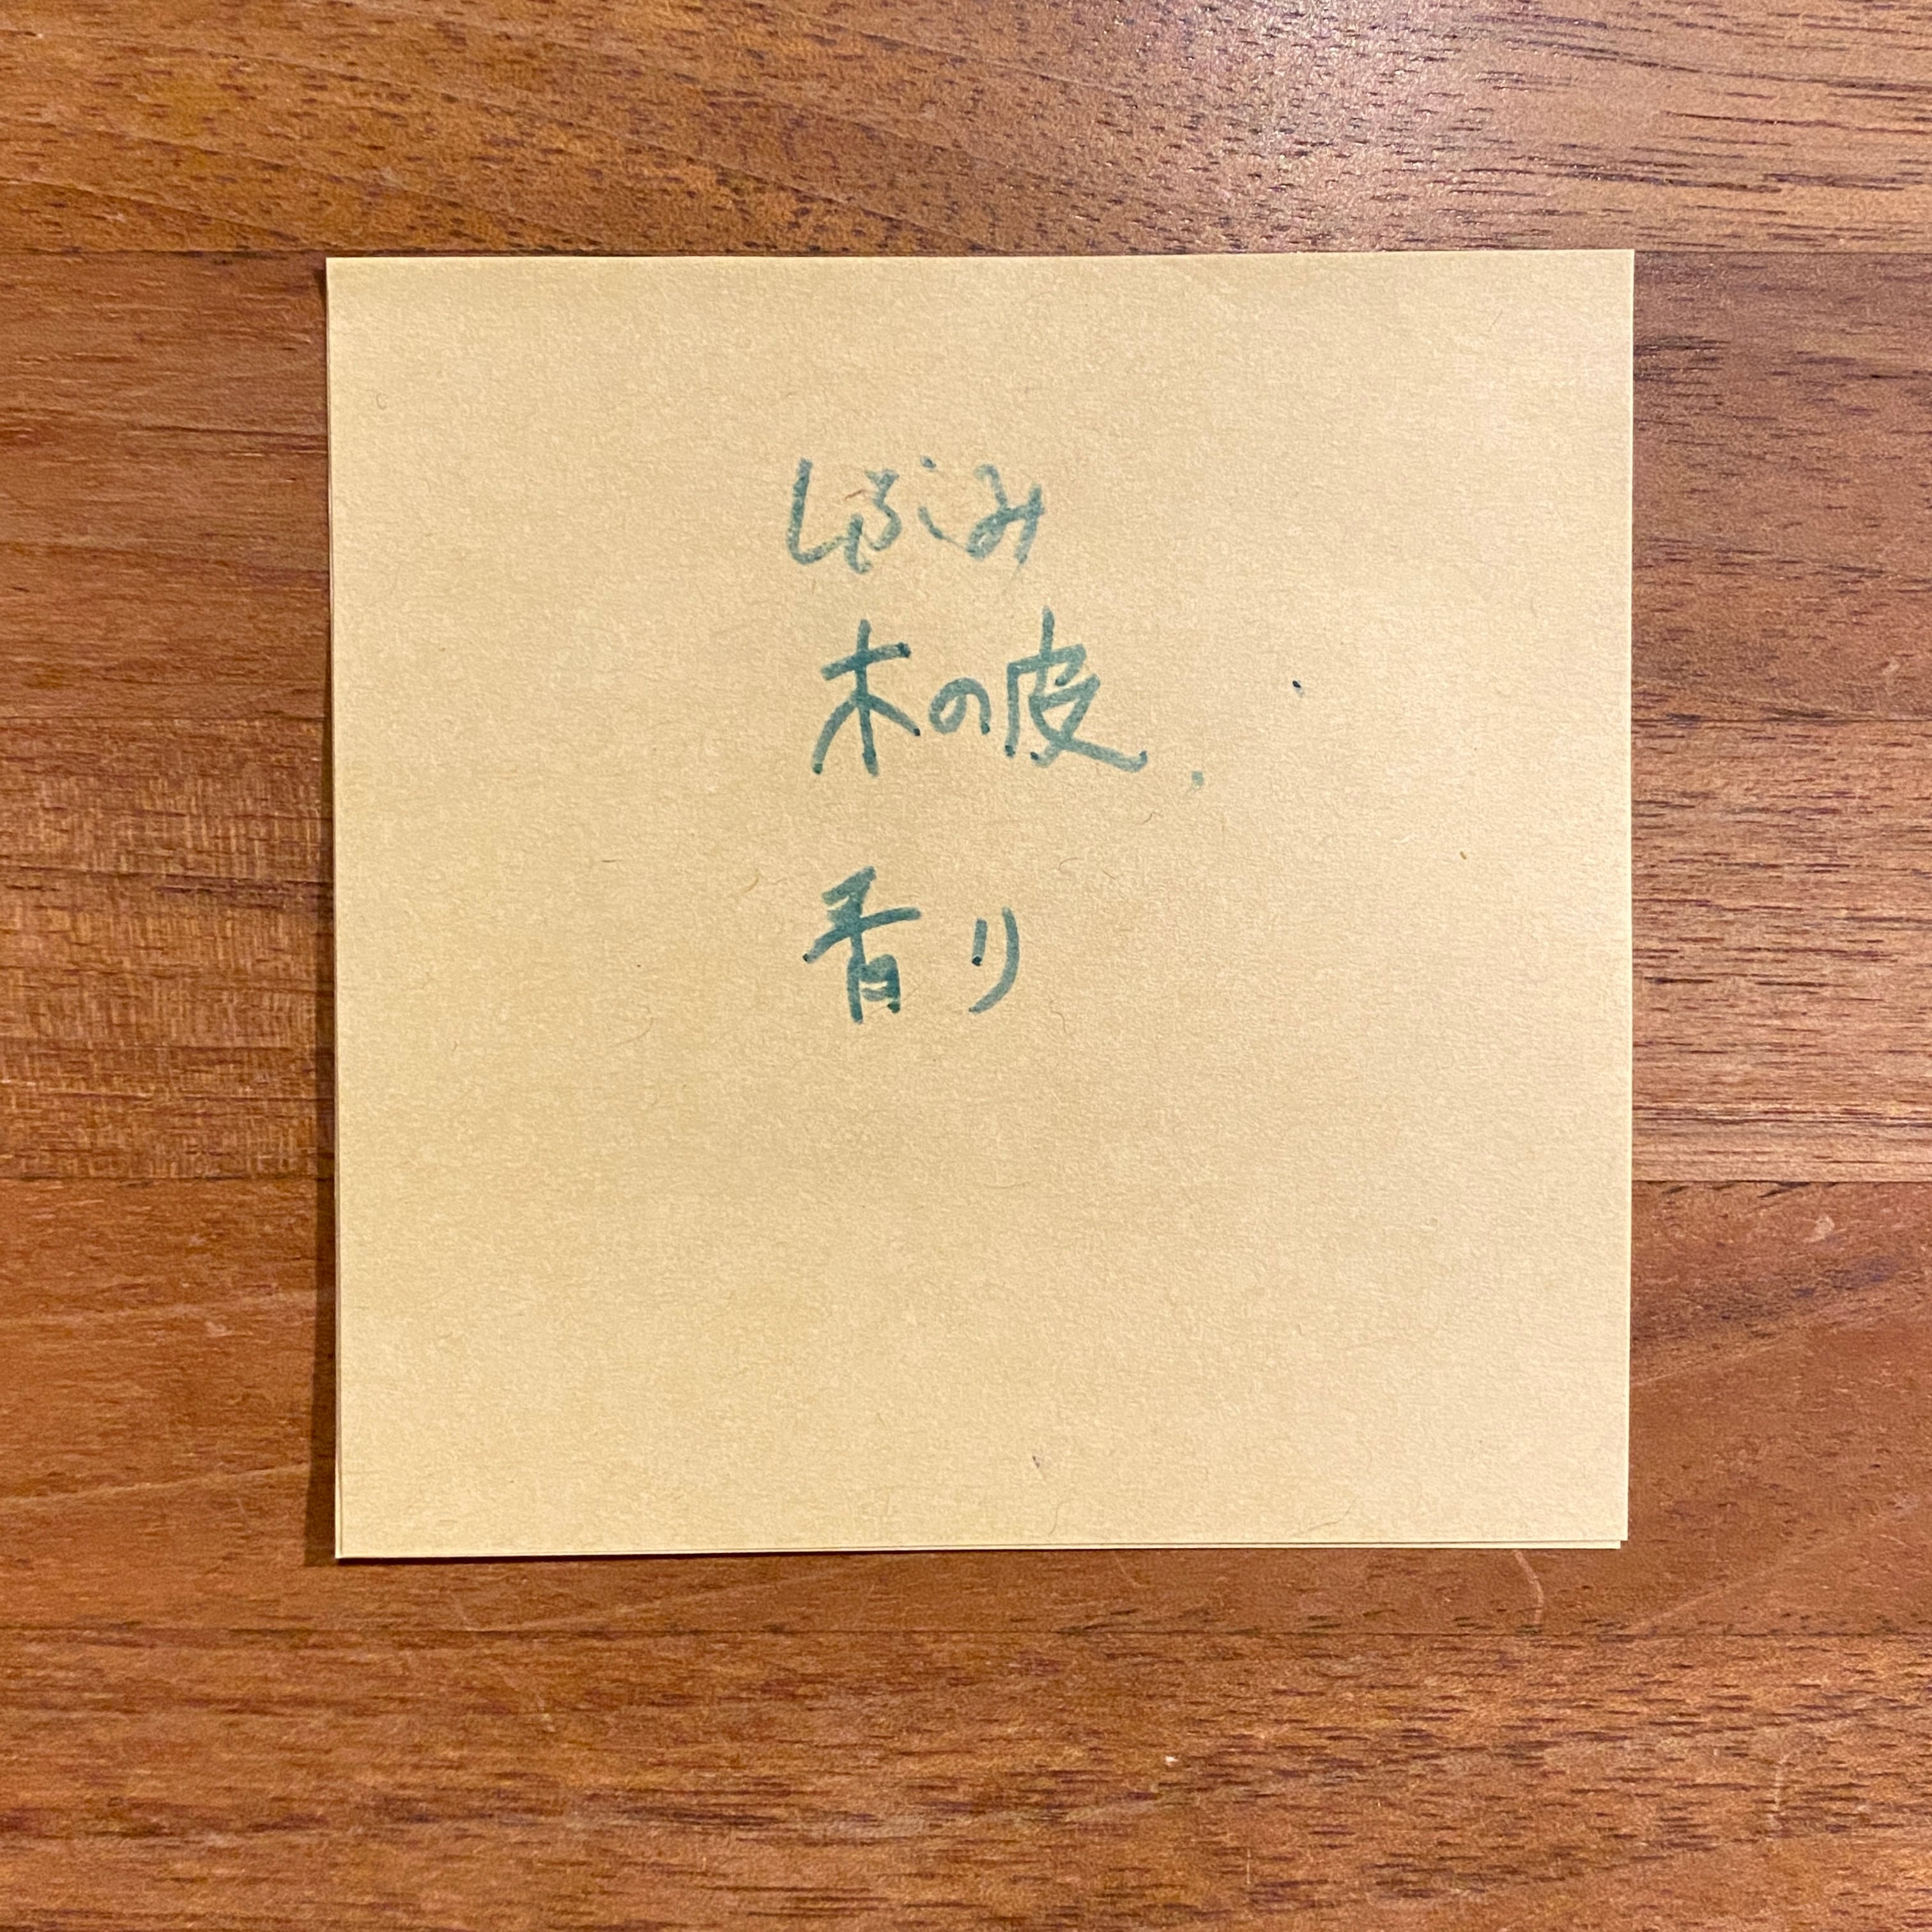 しぶみ
木の皮、
香り